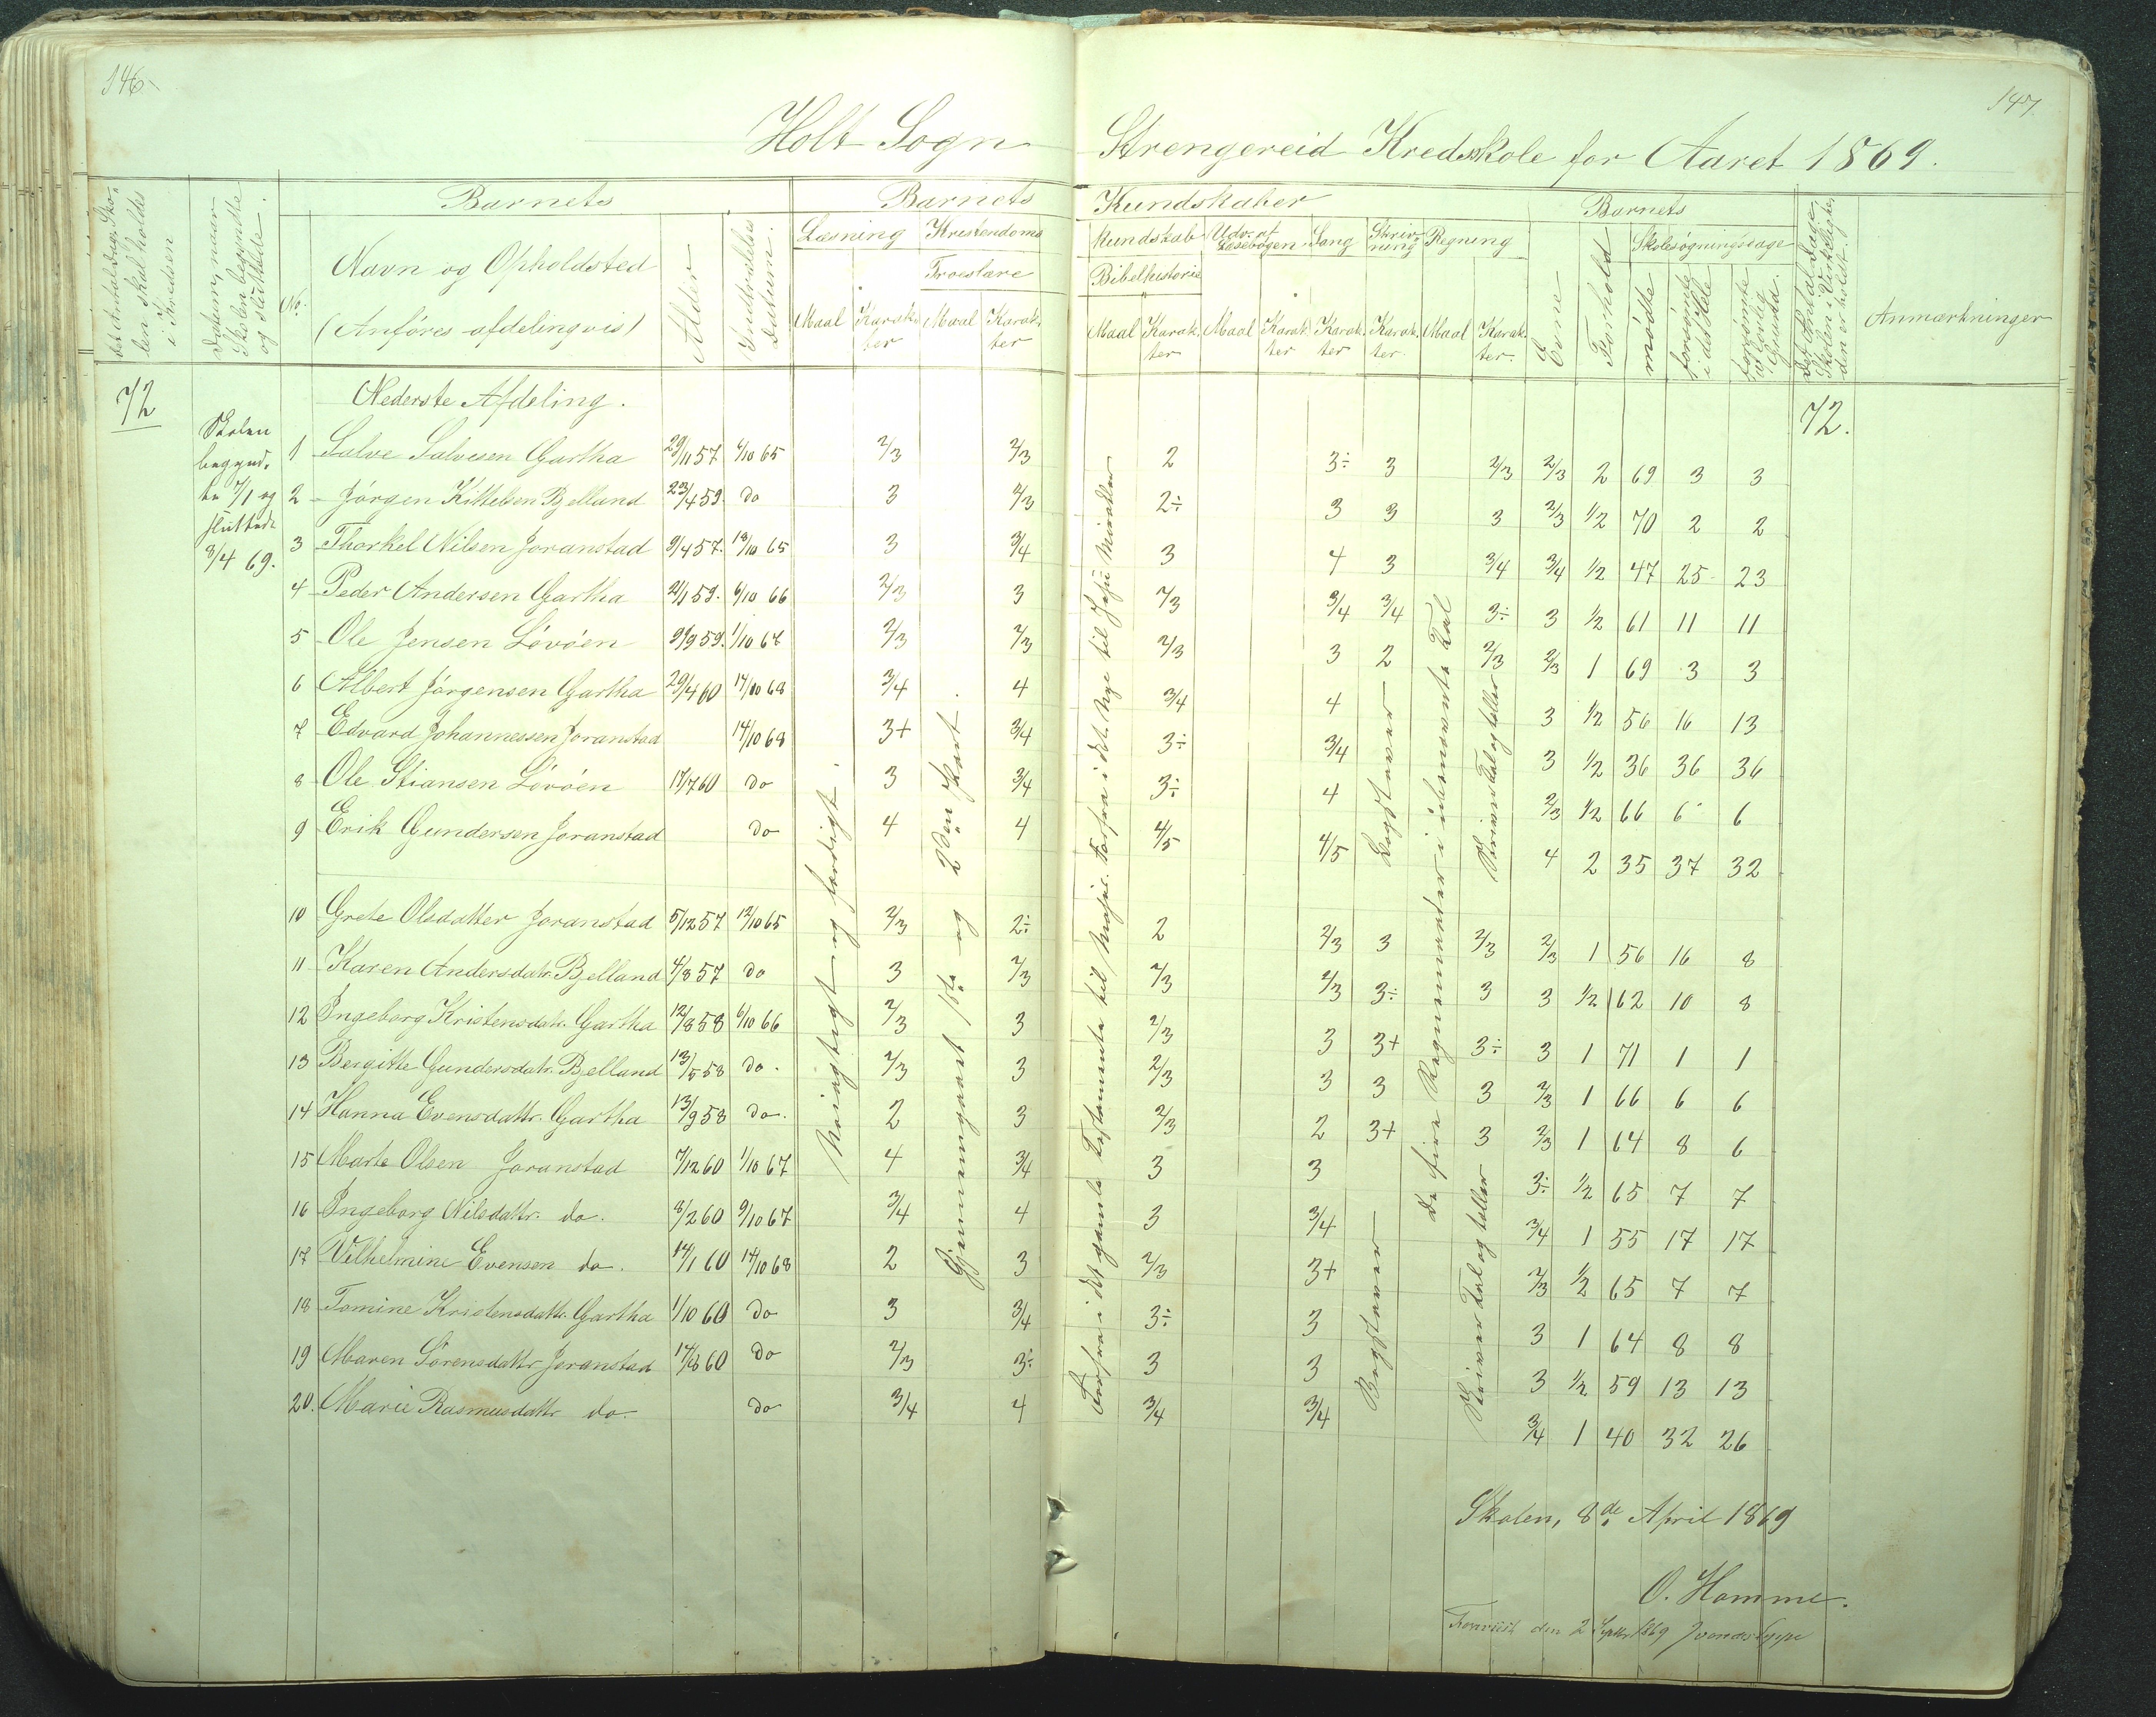 146
147
Holt Sogn Strengereid Kredsskole for Aaret 1869.
Det Antal Dage, Skolen skal holdes i Kredsen
Datum, naar Skolen begyndte og sluttede.
No.
Barnets
Navn og Opholdsted
(Anføres afdelingvis)
Alder
Indtrædelses Datum.
Barnets Kundskaber
Læsning
Kristendoms Kundskab
Udv. af Læsebogen
Sang
Skrivning
Regning
Troeslære
Bibelhistorie
Maal Karakter Maal Karakter Maal Karakter Maal Karakter Karakter Karakter Maal Karakter
Barnets
Evne
Forhold
Skolesøgningsdage
mødte
forsømte i det Hele
forsømte af lovlig Grund
Det Antal Dage Skolen i Virkeligheden er holdt
Anmærkninger
72
Skolen
begynd-
te 7/1 og
sluttede
8/4 69.
Nederste Afdeling.
72.
1 Salve Salvesen Gartha 29/11 57 4/10 65 2/3 2/3 2 3÷ 3 2/3 2/3 2 69 3 3
2 Jörgen Kittelsen Bjelland 23/4 59. do 3 2/3 2÷ 3 3 3 2/3 1/2 70 2 2
3 Thorkel Nilsen Joranstad 9/4 57. 13/10 65 3 3/4 3 4 3 3/4 3/4 1/2 47 25 23
4 Peder Andersen Gartha 2/1 59. 6/10 66 2/3 3 2/3 3/4 3/4 3÷ 3 1/2 61 11 11
5 Ole Jensen Lövöen 9/9 59. 1/10 67 2/3 2/3 2/3 3 2 2/3 2/3 1 69 3 3
6 Albert Jörgensen Gartha 29/4 60 14/10 68 3/4 4 3/4 4 3 1/2 56 16 13
7 Edvard Johannessen Joranstad 14/10 68 3+ 3/4 3÷ 3/4 3 1/2 36 36 36
8 Ole Stiansen Lövöen 17/7 60 do 3 3/4 3÷ 4 2/3 1/2 66 6 6
9 Erik Gundersen Joranstad do 4 4 4/5 4/5 4 2 35 37 32
10 Grete Olsdatter Joranstad 5/12 57 12/10 65 2/3 2÷ 2 2/3 3 2/3 2/3 1 56 16 8
11 Karen Andersdatr. Bjelland 4/8 57 do 3 2/3 2/3 2/3 3÷ 3 3 1/2 62 10 8
12 Ingeborg Kristensdatr. Gartha 12/8 58 6/10 66 2/3 3 2/3 3 3+ 3÷ 3 1 71 1 1
13 Bergitte Gundersdatr. Bjelland 13/5 58 do. 2/3 3 2/3 3 3 3 2/3 1 66 6 6
14 Hanna Evensdattr. Gartha 13/9 58 do. 2 3 2/3 2 3+ 3 2/3 1 64 8 6
15 Marte Olsen Joranstad 7/12 60 1/10 67 4 3/4 3 3 3÷ 1/2 65 7 7
16 Ingeborg Nilsdattr. do. 8/2 60 9/10 67 3/4 4 3 3/4 3/4 1 55 17 17
17 Vilhelmine Evensen do. 14/1 60 14/10 68 2 3 2/3 3+ 2/3 1/2 65 7 7
18 Tomine Kristensdattr. Gartha 1/10 60 do 3 3/4 3÷ 3 3 1 64 8 8
19 Maren Sörensdattr. Joranstad 14/8 60 do 2/3 3÷ 3 3 3 1/2 59 13 13
20. Marie Rasmusdattr. do. do 3/4 4 3/4 3/4 3/4 1 40 32 26
Nøiagtigt og færdigt.
Gjennemgaaet 1ste og 2den Part.
Forfra i det gamle Testamente til Moses. Forfra i det Nye til Jesu Mirakler
Bogstaver
Bogstaver
De fire Regnemaader i ubenævnte Tal
Skriver Tal og tæller
Skriver Tal og tæller
Skolen, 8de April 1869
O. Hamme.
den 2 Septbr 1869